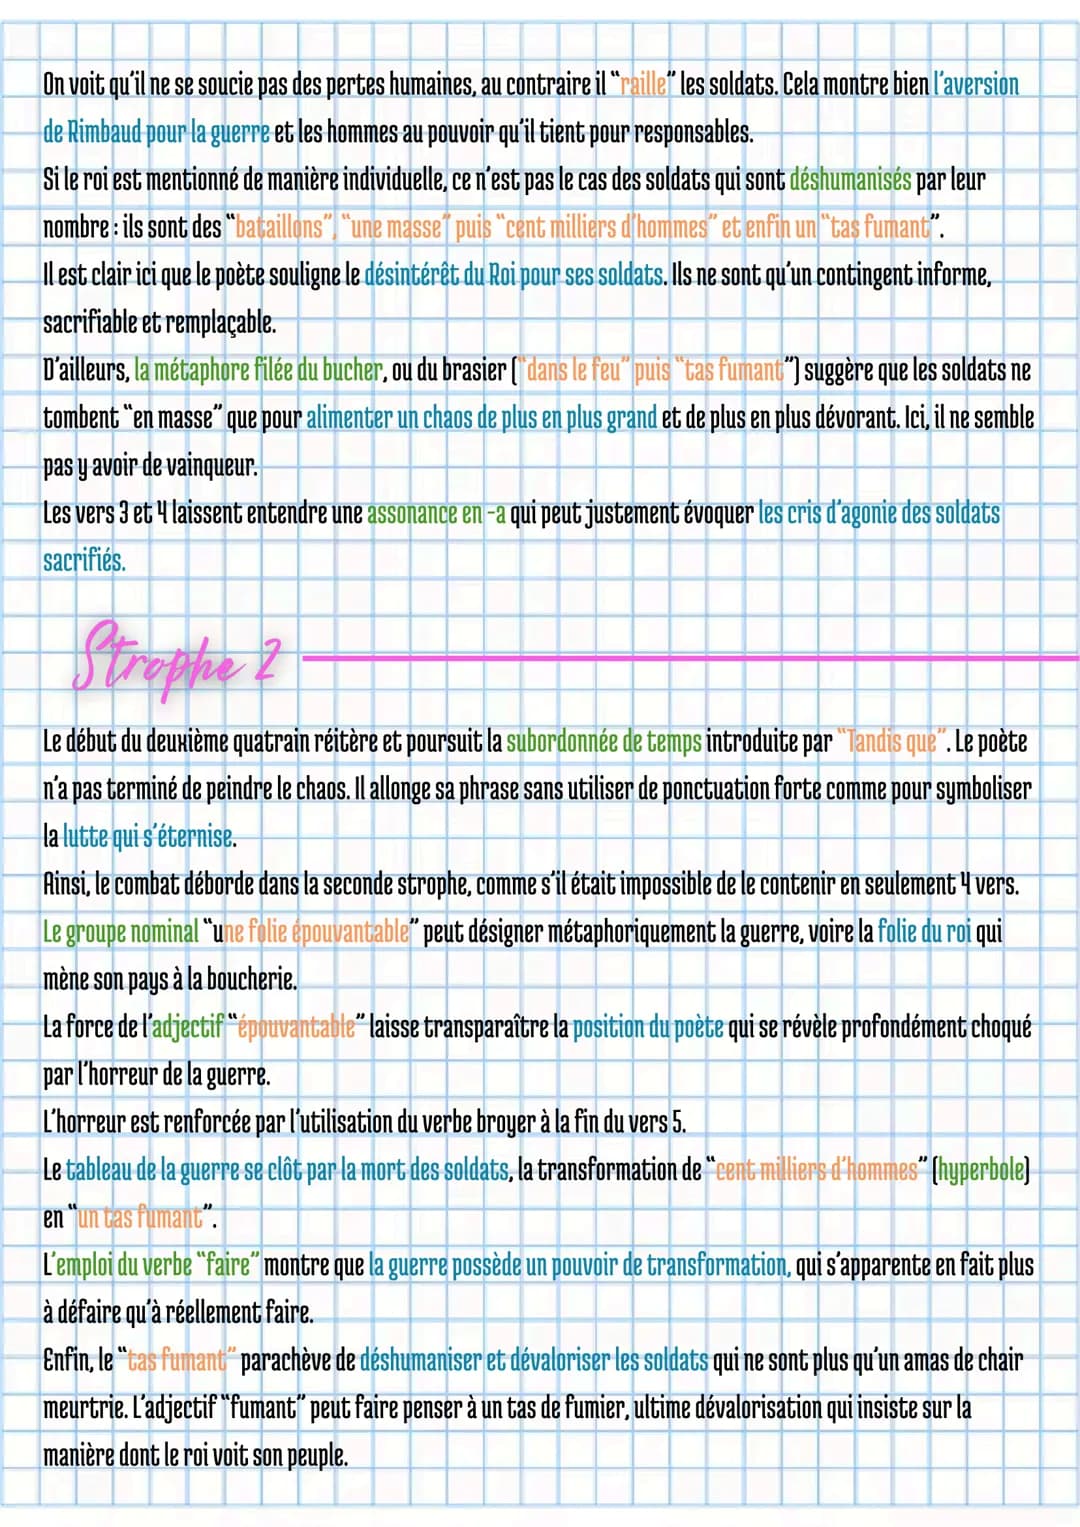 On voit qu'il ne se soucie pas des pertes humaines, au contraire il “raille” les soldats. Cela montre bien l'aversion
de Rimbaud pour la guerre et les hommes au pouvoir qu'il tient pour responsables.
Si le roi est mentionné de manière individuelle, ce n'est pas le cas des soldats qui sont déshumanisés par leur
nombre : ils sont des “bataillons”, “une masse” puis “cent milliers d'hommes” et enfin un “tas fumant”.
Il est clair ici que le poète souligne le désintérêt du Roi pour ses soldats. Ils ne sont qu'un contingent informe,
sacrifiable et remplaçable.
D'ailleurs, la métaphore filée du bucher, ou du brasier (“dans le feu” puis “tas fumant”) suggère que les soldats ne
tombent “en masse” que pour alimenter un chaos de plus en plus grand et de plus en plus dévorant. Ici, il ne semble
pas y avoir de vainqueur.
Les vers 3 et 4 laissent entendre une assonance en -a qui peut justement évoquer les cris d'agonie des soldats
sacrifiés.
Strophe 2
Le début du deuxième quatrain réitère et poursuit la subordonnée de temps introduite par “Tandis que”. Le poète
n'a pas terminé de peindre le chaos. Il allonge sa phrase sans utiliser de ponctuation forte comme pour symboliser
la lutte qui s'éternise.
Ainsi, le combat déborde dans la seconde strophe, comme s'il était impossible de le contenir en seulement 4 vers.
Le groupe nominal “une folie épouvantable” peut désigner métaphoriquement la guerre, voire la folie du roi qui
mène son pays à la boucherie.
La force de l'adjectif “épouvantable” laisse transparaître la position du poète qui se révèle profondément choqué
par l'horreur de la guerre.
L'horreur est renforcée par l'utilisation du verbe broyer à la fin du vers 5.
Le tableau de la guerre se clôt par la mort des soldats, la transformation de “cent milliers d'hommes” (hyperbole)
en “un tas fumant”.
L'emploi du verbe “faire” montre que la guerre possède un pouvoir de transformation, qui s'apparente en fait plus
à défaire qu'à réellement faire.
Enfin, le “tas fumant” parachève de déshumaniser et dévaloriser les soldats qui ne sont plus qu'un amas de chair
meurtrie. L'adjectif “fumant” peut faire penser à un tas de fumier, ultime dévalorisation qui insiste sur la
manière dont le roi voit son peuple.